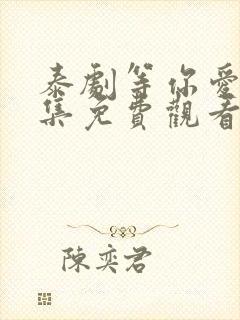 泰劇等你愛
集免費觀看
陳奕君